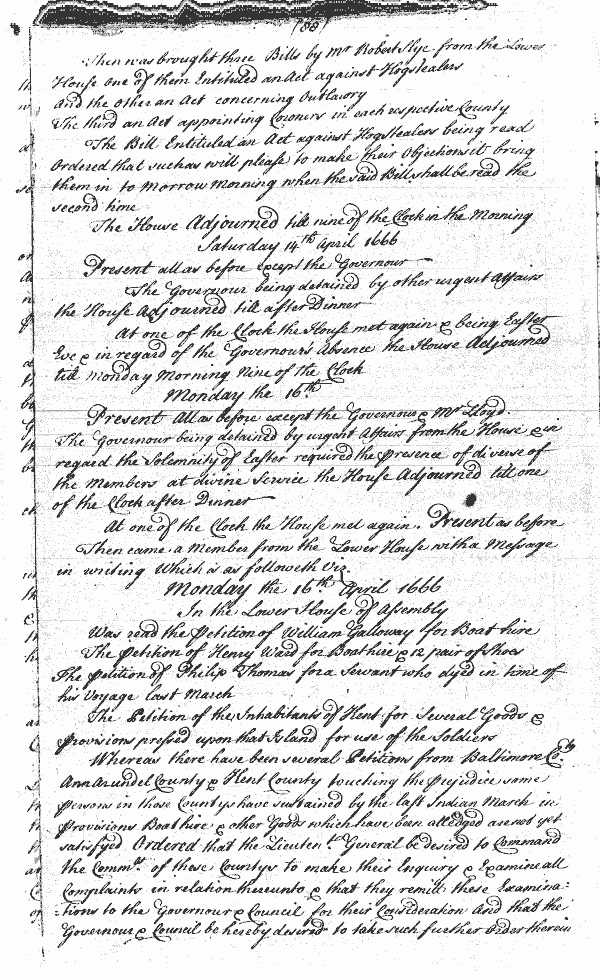 (88)
Then was brought three Bills by Mr Robert Slye from the Lower
House one of them Entituled an Act against Hogstealers
And the other an Act concerning Outlawry
The third an Act appointing Coroners in each respective County
The Bill Entituled an Act against Hogstealers being read
Ordered that such as will please to make their Objections it bring
them in to Morrow Morning when the said Bill shall be read the
second time
The House Adjourned till nine of the Clock in the Morning
Saturday 14th April 1666
Present all as before except the Governour
The Governour being detained by other urgent Affairs
the House Adjourned till after Dinner
At one of the Clock the House met again & being Easter
Eve & in regard of the Governours Absence the House Adjourned
till Monday Morning Nine of the Clock
Monday the 16th
Present All as before except the Governour & Mr Lloyd.
The Governour being detained by urgent Affairs from the House & in
regard the Solemnity of Easter required the Presence of diverse of
the Members at divine Service the House Adjourned till one
of the Clock after Dinner
At one of the Clock the House met again. Present as before
Then came a Member from the Lower House with a Message
in writing Which is as followeth Viz.
Monday the 16th April 1666
In the Lower House of Assembly
Was read the Petition of William Galloway for Boat hire
The Petition of Henry Ward for Boat hire & 12 pair of Shoes
The petition of Philip Thomas for a Servant who dyed in time of
his Voyage last March
The Petition of the Inhabitants of Kent for Several Goods &
Provisions pressed upon that Island for use of the Soldiers
Whereas there have been several Petitions from Baltimore Coty
Ann Arundel County & Kent County touching the Prejudice some
Persons in those Countys have sustained by the last Indian March in
Provisions Boat hire & other Goods which have been alledged are not yet
satisfyed Ordered that the Lieutent General be desired to Command
the Commrs of these Countys to make their Enquiry & Examine all
Complaints in relation thereunto & that they remitt these Examina:
:tions to the Governour & Council for their Consideration And that the
Governour & Council be hereby desired to take such further Order therein